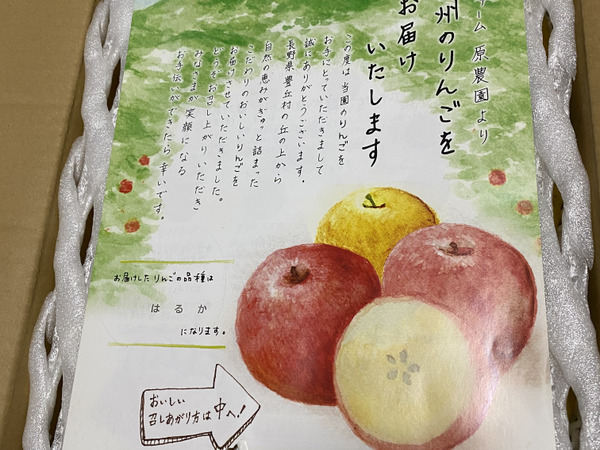 ーム 原農園より
州のりんごを
お届け
いたします
この度は当園のりんごを
お手にとっていただきまして
誠にありがとうございます。
長野県豊丘村の丘の上から
自然の恵みがぎゅっと詰まった
こだわりのおいしいりんごを
お届けさせていただきました。
どうぞお召し上がりいただき
みなさまが笑顔になる
お手伝いができたら幸いです。
お届けしたりんごの品種は
はるか
になります。
おいしい
召しあがり方は中へ!